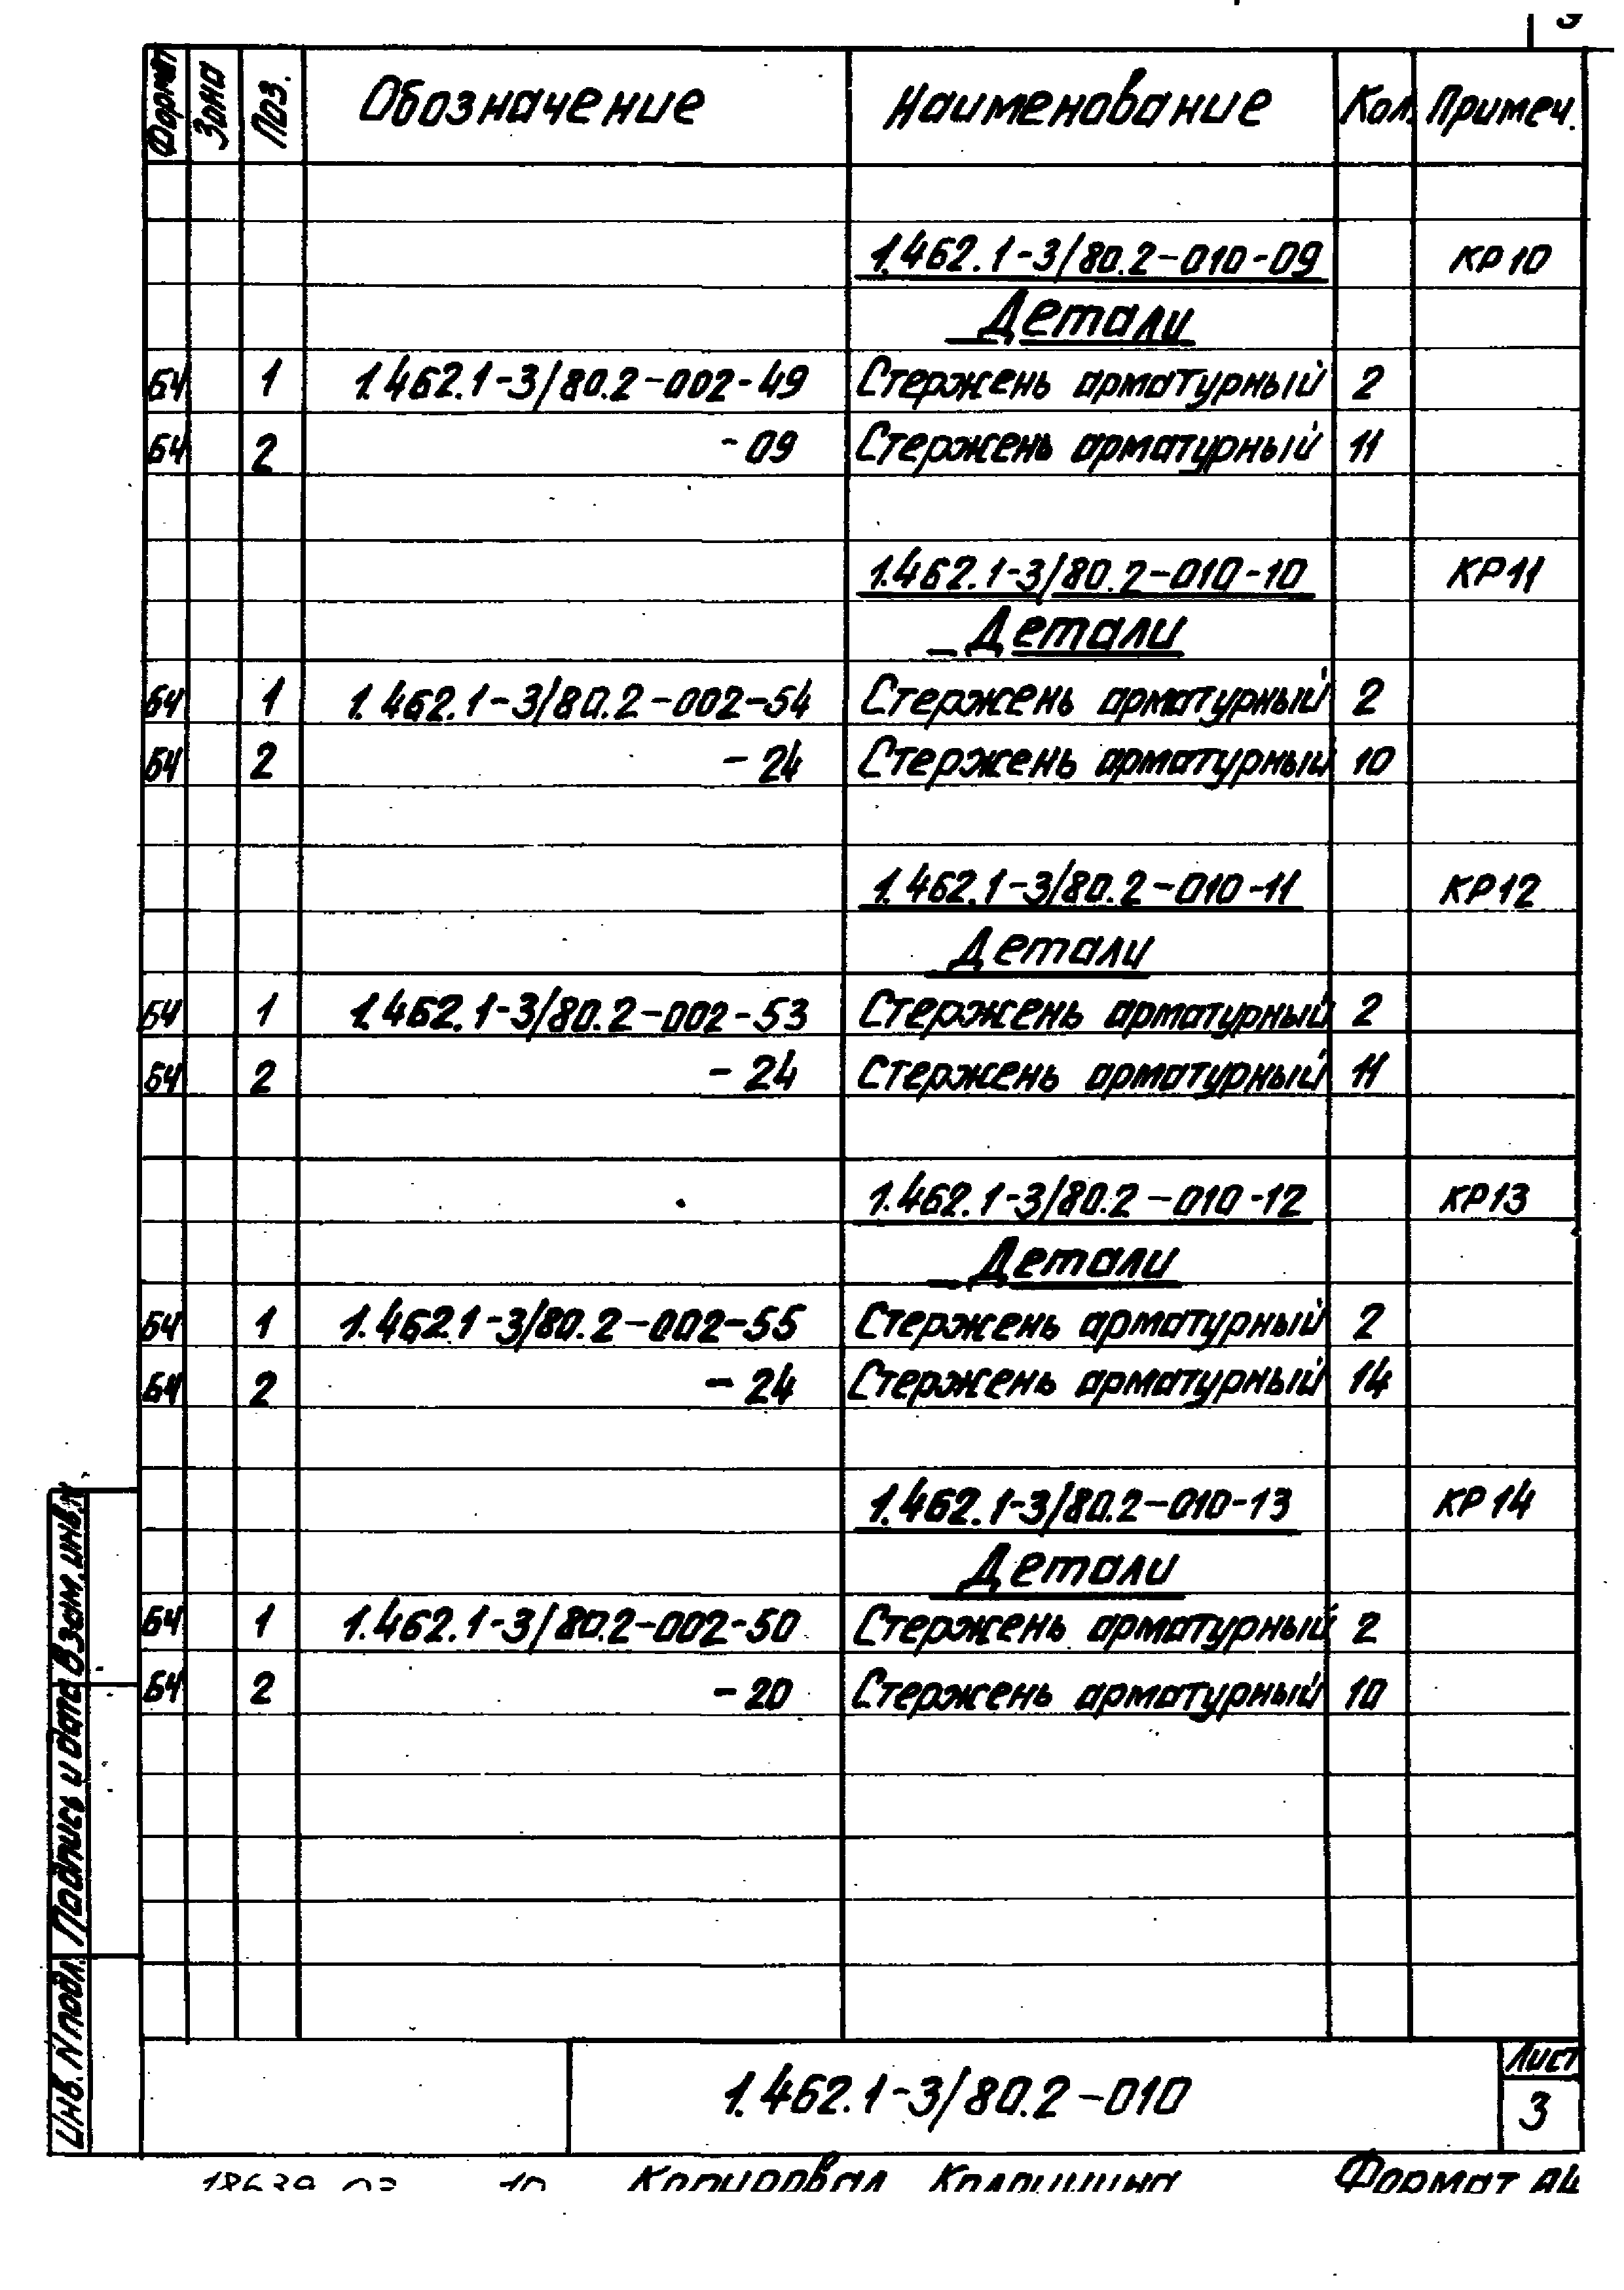 Формат Зона Поз. Обозначение Наименование Кол. Примеч.
1.462.1-3/80.2-010-09 КР10
Детали
БЧ 1 1.462.1-3/80.2-002-49 Стержень арматурный 2
БЧ 2 -09 Стержень арматурный 11
1.462.1-3/80.2-010-10 КР11
Детали
БЧ 1 1.462.1-3/80.2-002-54 Стержень арматурный 2
БЧ 2 -24 Стержень арматурный 10
1.462.1-3/80.2-010-11 КР12
Детали
БЧ 1 1.462.1-3/80.2-002-53 Стержень арматурный 2
БЧ 2 -24 Стержень арматурный 11
1.462.1-3/80.2-010-12 КР13
Детали
БЧ 1 1.462.1-3/80.2-002-55 Стержень арматурный 2
БЧ 2 -24 Стержень арматурный 14
1.462.1-3/80.2-010-13 КР14
Детали
БЧ 1 1.462.1-3/80.2-002-50 Стержень арматурный 2
БЧ 2 -20 Стержень арматурный 10
Взам. инв. №
Подпись и дата
Инв. № подл.
1.462.1-3/80.2-010
Лист
3
Копировал Формат А4